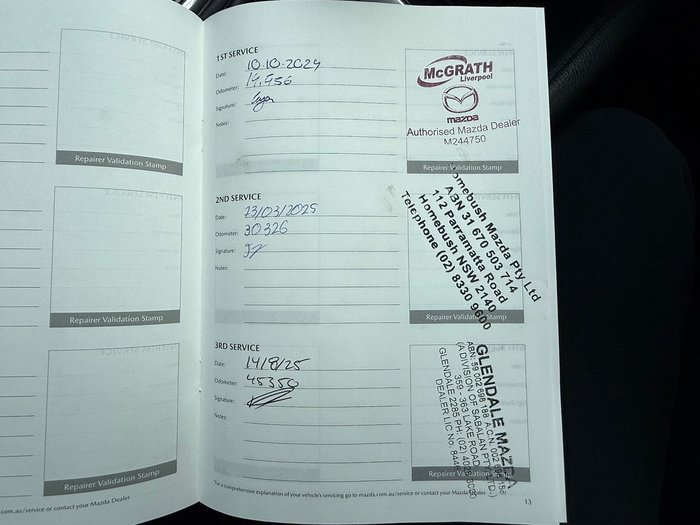 Repairer Validation Stamp
Repairer Validation Stamp
Repairer Validation Stamp
com.au/service or contact your Mazda Dealer
1ST SERVICE
Date: 10-10-2024
Odometer:
Signature:
Notes:
McGRATH
Liverpool
mazda
Authorised Mazda Dealer
M244750
Repairer Validation Stamp
2ND SERVICE
Date: 13/03/2025
Odometer: 30326
Signature:
Notes:
Homebush Mazda Pty Ltd
ABN 31 670 503 714
112 Parramatta Road
Homebush NSW 2140
Telephone (02) 8330 9600
3RD SERVICE
Date: 14/8/25
Odometer: 45350
Signature:
Notes:
GLENDALE MAZDA
ABN: 59 002 698 188 A.C.N. 002 698
(A DIVISION OF SABALAN PTY LTD)
359 - 363 LAKE ROAD
GLENDALE 2285 PH: (02)
DEALER LIC No.
Repairer Validation Stamp
*For a comprehensive explanation of your vehicle's servicing go to mazda.com.au/service or contact your Mazda Dealer
13